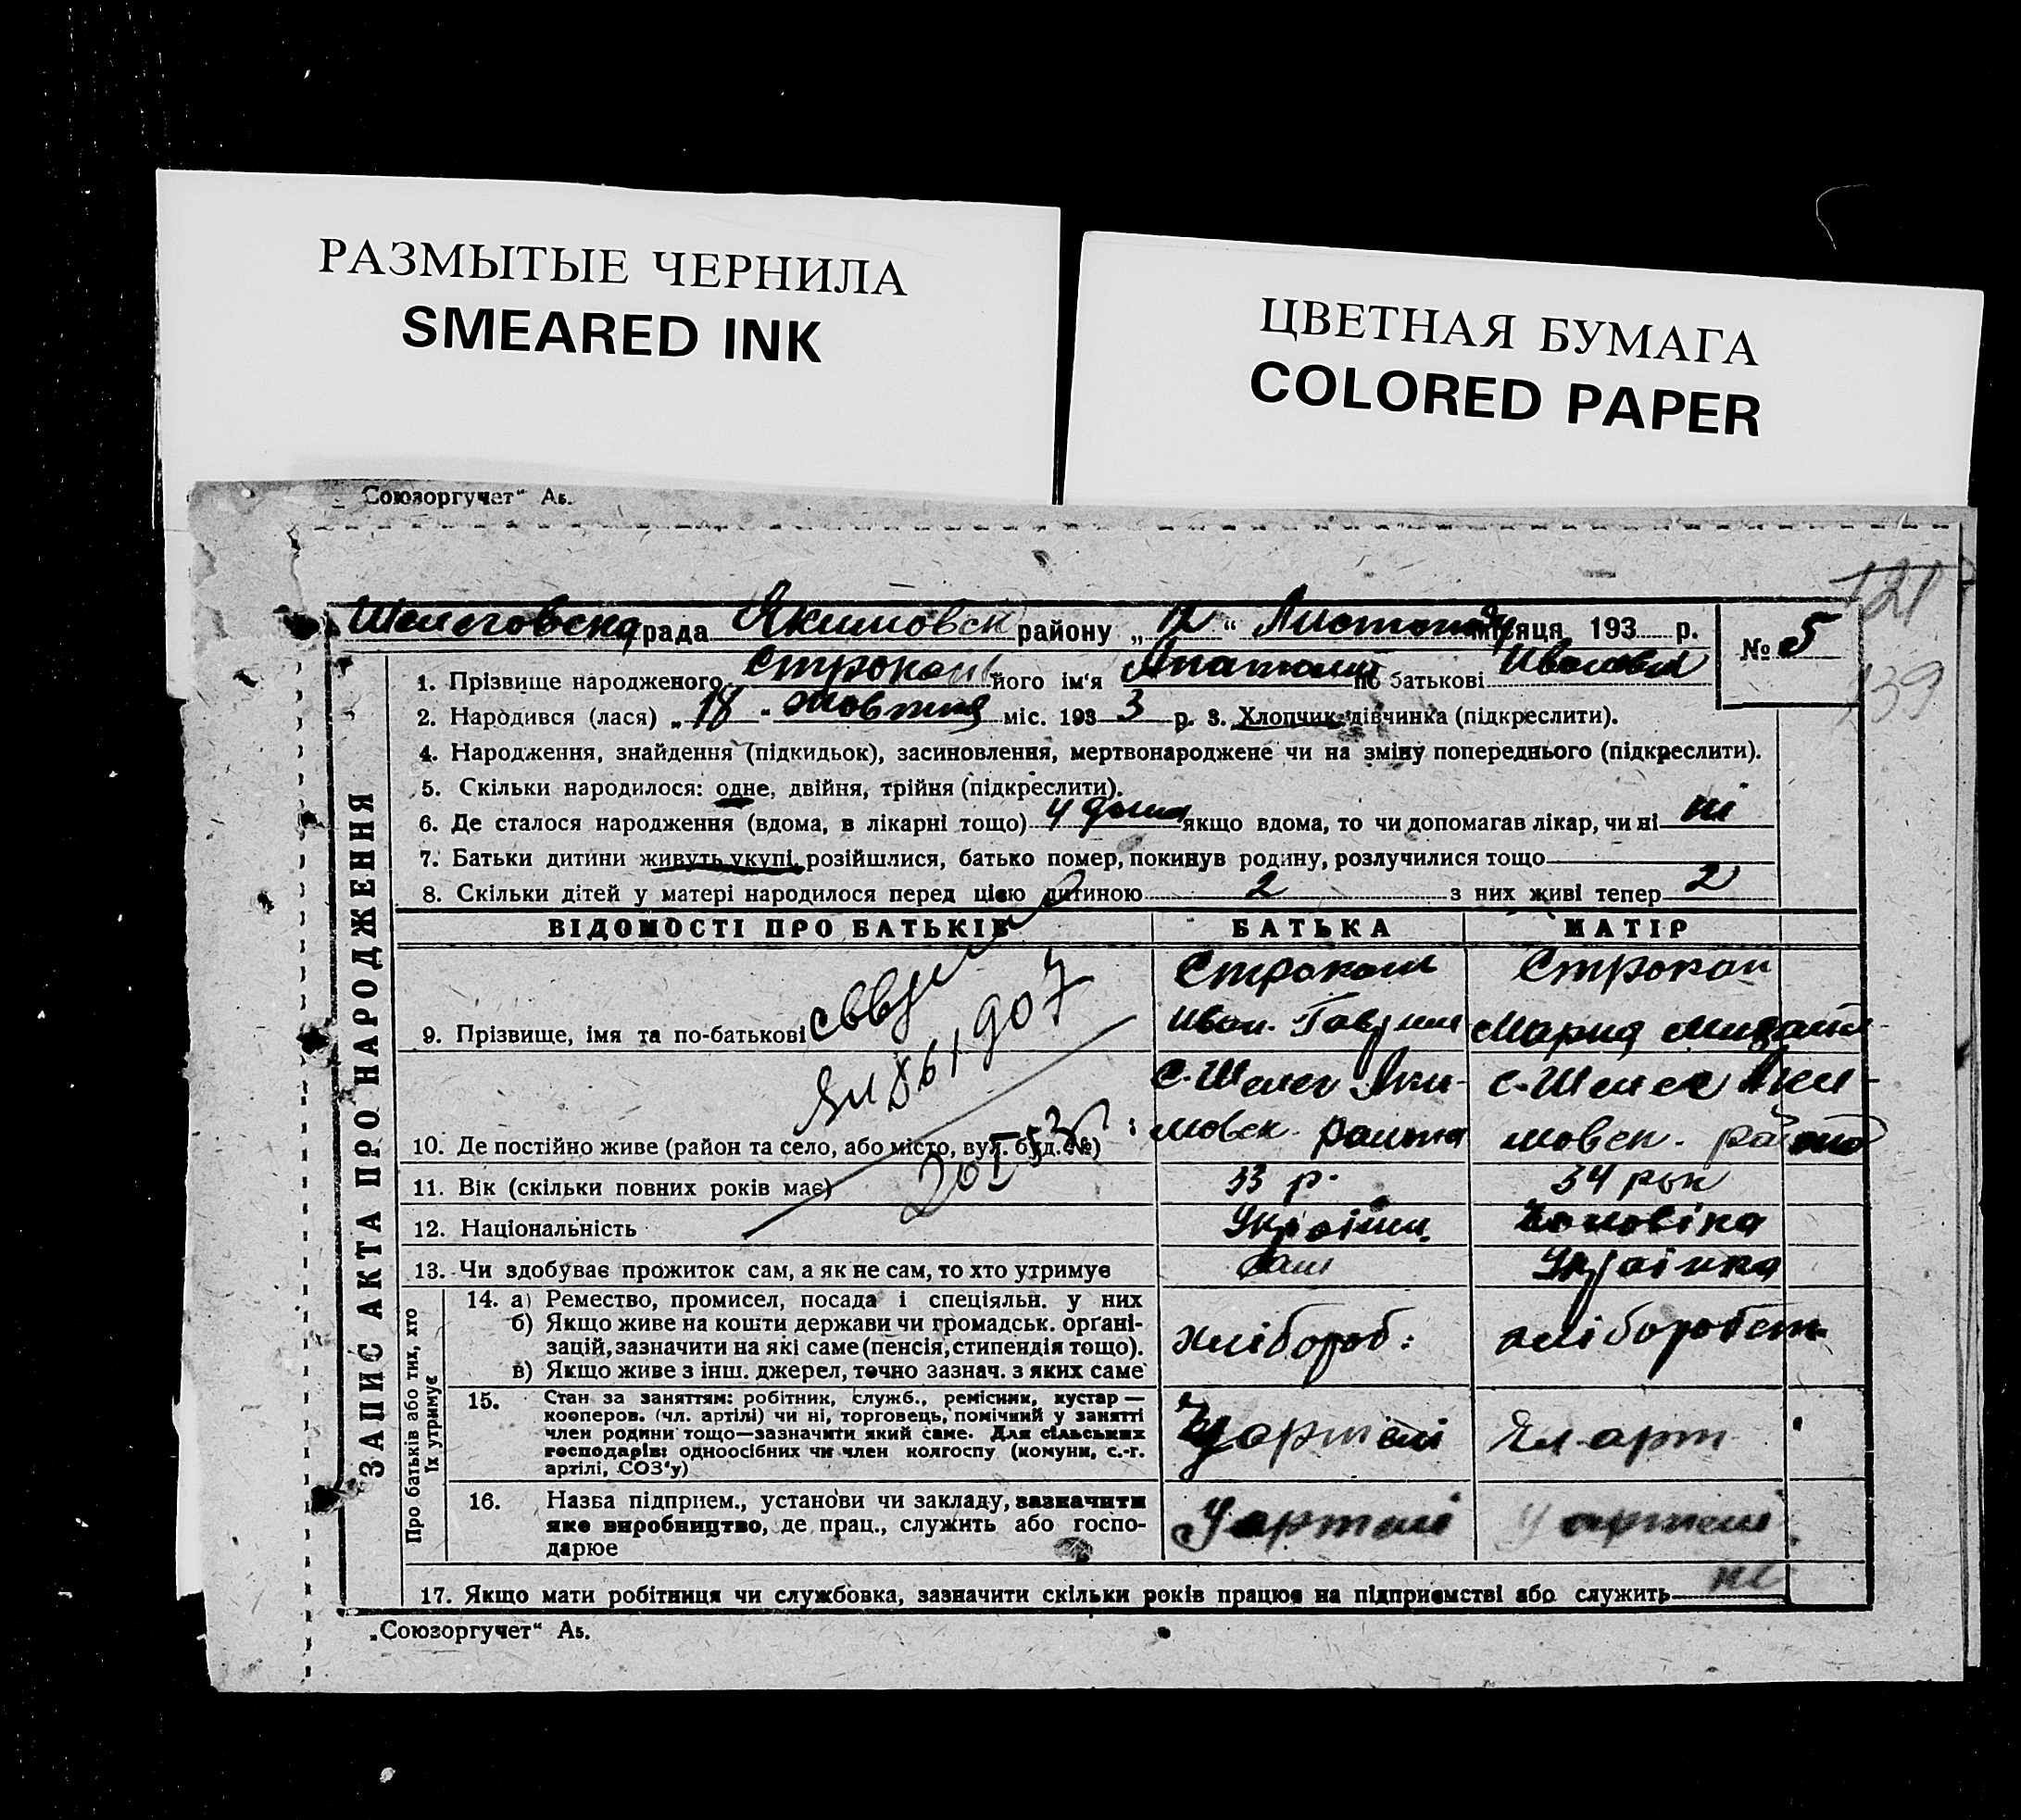 РАЗМЫТЫЕ ЧЕРНИЛА
SMEARED INK
ЦВЕТНАЯ БУМАГА
COLORED PAPER
„Союзоргучет“ А5.
121
139
Шелеговска рада Якимовск району „12“ Листопад місяця 193 р.
№ 5
ЗАПИС АКТА ПРО НАРОДЖЕННЯ
1. Прізвище народженого Строкань його ім'я Анатолий по батькові Иванович
2. Народився (лася) „18“ жовтня міс. 193 3 р. 3. Хлопчик, дівчинка (підкреслити).
4. Народження, знайдення (підкидьок), засиновлення, мертвонароджене чи на зміну попереднього (підкреслити).
5. Скільки народилося: одне, двійня, трійня (підкреслити).
6. Де сталося народження (вдома, в лікарні тощо) у дома якщо вдома, то чи допомагав лікар, чи ні ні
7. Батьки дитини живуть укупі, розійшлися, батько помер, покинув родину, розлучилися тощо
8. Скільки дітей у матері народилося перед цією дитиною 2 з них живі тепер 2
ВІДОМОСТІ ПРО БАТЬКІВ БАТЬКА МАТІР
9. Прізвище, імя та по-батькові Строкань Строкан
Иван. Мария
861907
10. Де постійно живе (район та село, або місто, вул. буд. №) с. Шелег Яки- с. Шелег Яки-
мовск. район мовск. район
11. Вік (скільки повних років має) 33 р. 34 рок
12. Національність Україн.
13. Чи здобуває прожиток сам, а як не сам, то хто утримує сам Українка
Про батьків або тих, хто їх утримує
14. а) Ремество, промисел, посада і спеціяльн. у них
б) Якщо живе на кошти держави чи громадськ. органі-
зацій, зазначити на які саме (пенсія, стипендія тощо).
в) Якщо живе з інш. джерел, точно зазнач. з яких саме
хлібороб: хліборобст.
15. Стан за заняттям: робітник, служб., ремісник, кустар —
кооперов. (чл. артілі) чи ні, торговець, помічний у занятті
член родини тощо—зазначити який саме. Для сільських
господарів: одноосібних чи член колгоспу (комуни, с.-г.
артілі, СОЗ'у)
У артілі арт
16. Назва підприєм., установи чи закладу, зазначити
яке виробництво, де прац., служить або госпо-
дарює
У артілі У артілі
17. Якщо мати робітниця чи службовка, зазначити скільки років працює на підприємстві або служить ні
„Союзоргучет“ А5.